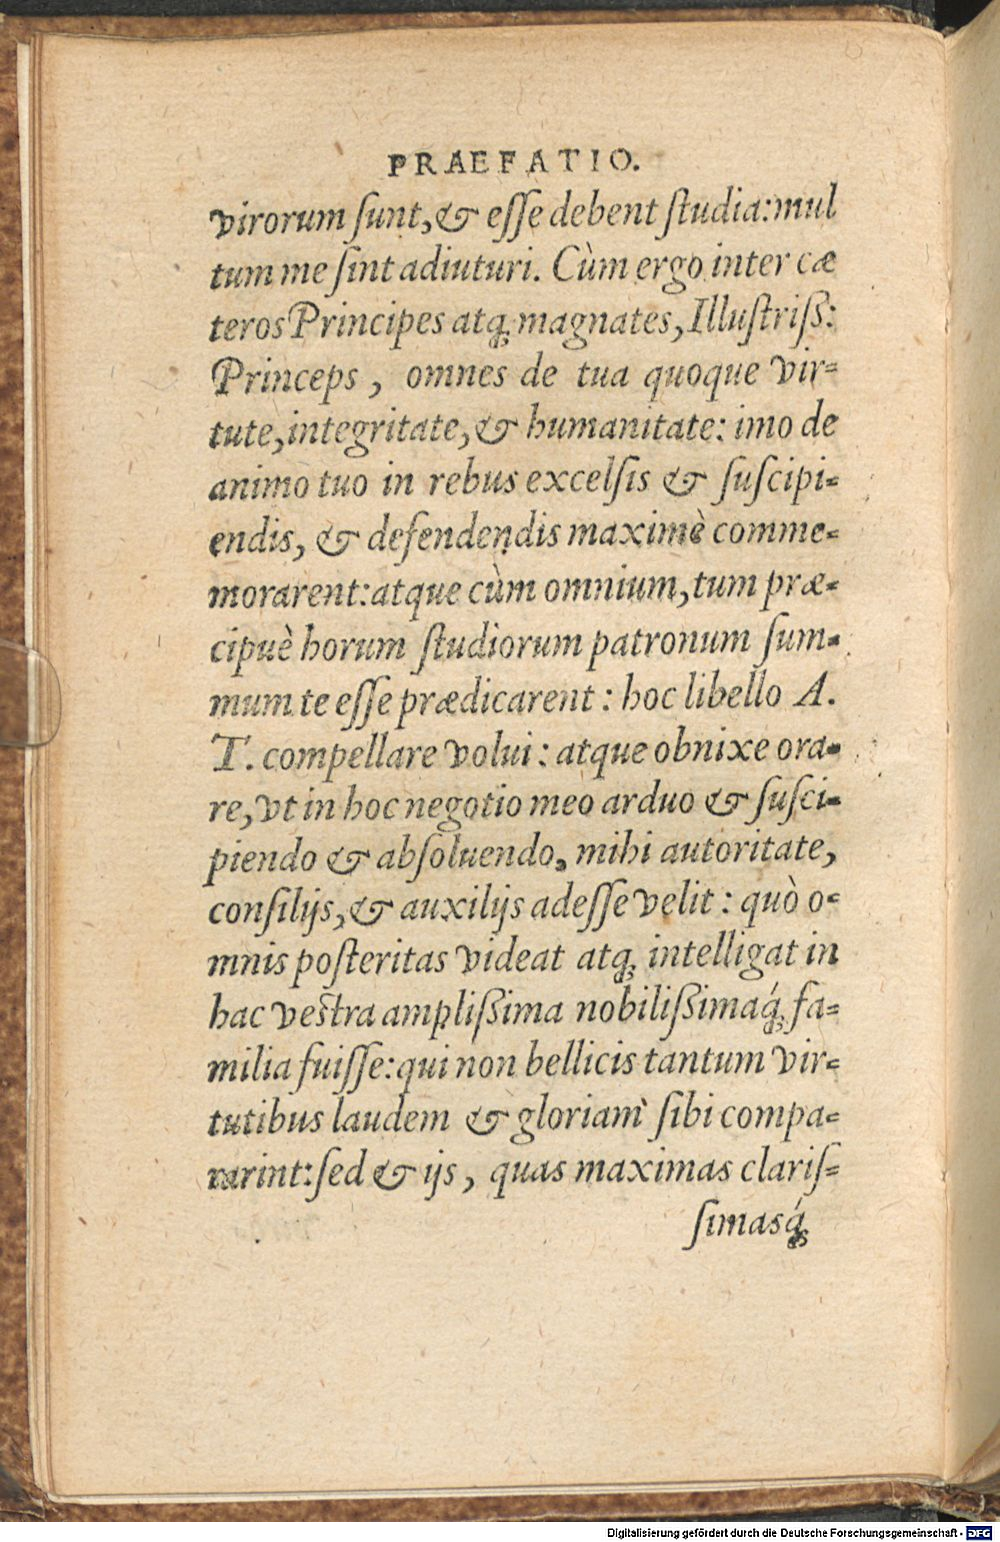 PRAEFATIO.
virorum ſunt, & eſſe debent ſtudia: mul
tum me ſint adiuturi. Cùm ergo inter cæ
teros Principes atq́; magnates, Illuſtriß:
Princeps, omnes de tua quoque vir-
tute, integritate, & humanitate: imo de
animo tuo in rebus excelſis & ſuſcipi-
endis, & defendendis maximè comme-
morarent: atque cùm omnium, tum præ-
cipuè horum ſtudiorum patronum ſum-
mum te eſſe prædicarent: hoc libello A.
T. compellare volui: atque obnixe ora-
re, vt in hoc negotio meo arduo & ſuſci-
piendo & abſoluendo, mihi autoritate,
conſilijs, & auxilijs adeſſe velit: quò o-
mnis poſteritas videat atq; intelligat in
hac veſtra amplißima nobilißimaq́; fa-
milia fuiſſe: qui non bellicis tantum vir-
tutibus laudem & gloriam ſibi compa-
rarint: ſed & ijs, quas maximas clariſ-
ſimasq́;
Digitalisierung gefördert durch die Deutsche Forschungsgemeinschaft - DFG